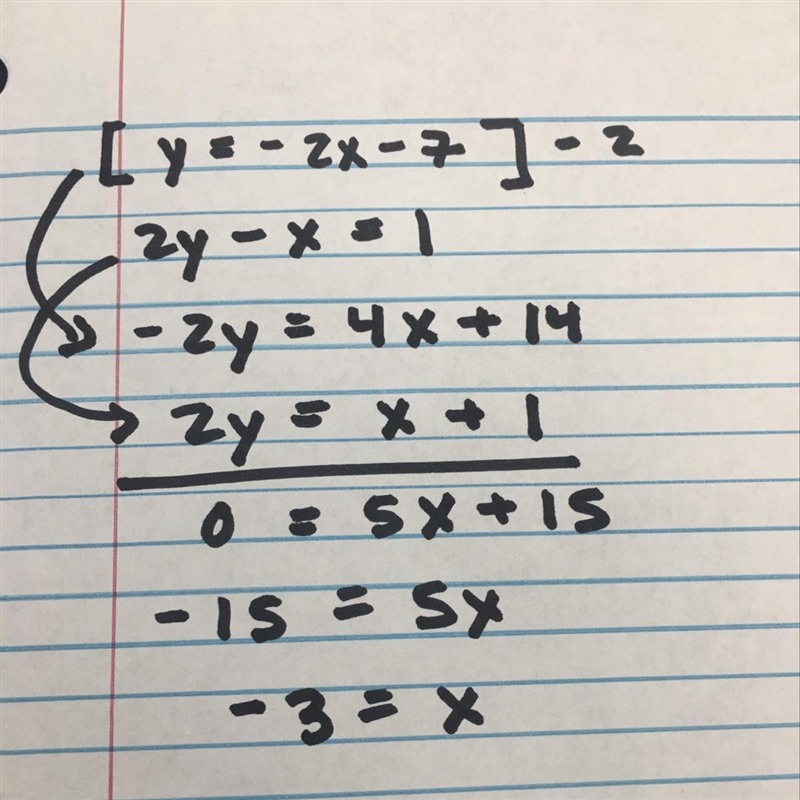 [ y = - 2x - 7 ] - 2
2y - x = 1
- 2y = 4x + 14
2y = x + 1
0 = 5x + 15
- 15 = 5x
- 3 = x